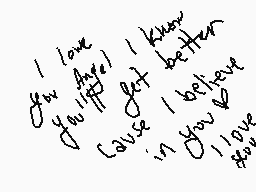 I love
you Angel I know
you'll get better
Cause I believe
in you ♡
I love
you